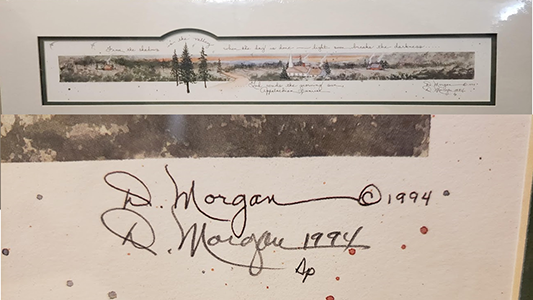 From the shadows in the valley when the day is done - light soon breaks the darkness
And ends the morning sun
Appalachian
D. Morgan © 1994
D. Morgan 1994
D. Morgan © 1994
D. Morgan 1994
Ap